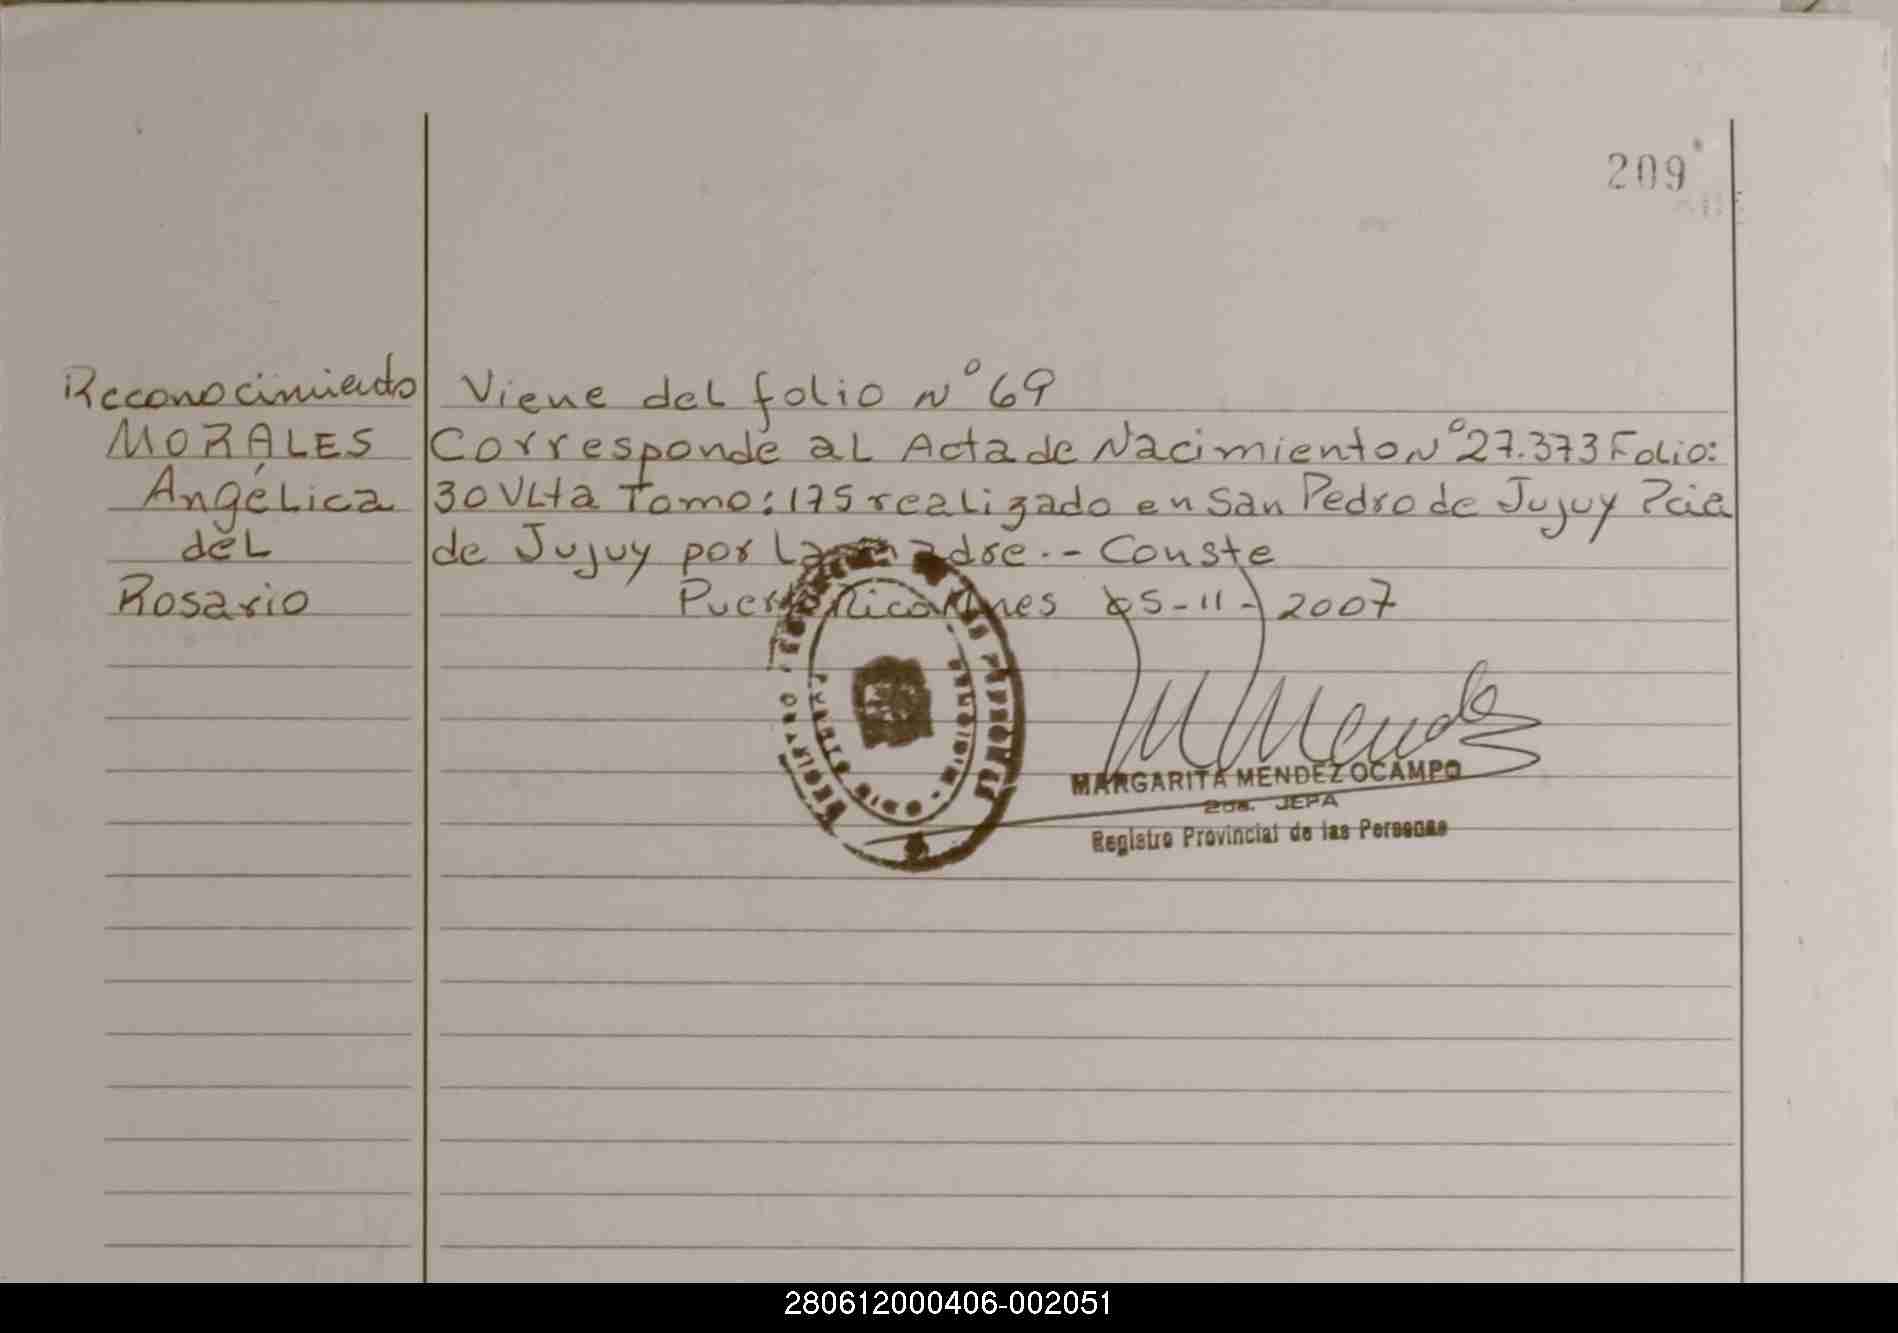 209
Reconocimiento
MORALES
Angélica
del
Rosario
Viene del folio N° 69
Corresponde al Acta de Nacimiento N° 27.373 Folio:
30 Vlta Tomo: 175 realizado en San Pedro de Jujuy Pcia
de Jujuy por la madre.- Conste
Puerto Rico Mnes 05-11-2007
M Mendez
MARGARITA MENDEZ OCAMPO
2da. JEFA
Registro Provincial de las Personas
280612000406-002051